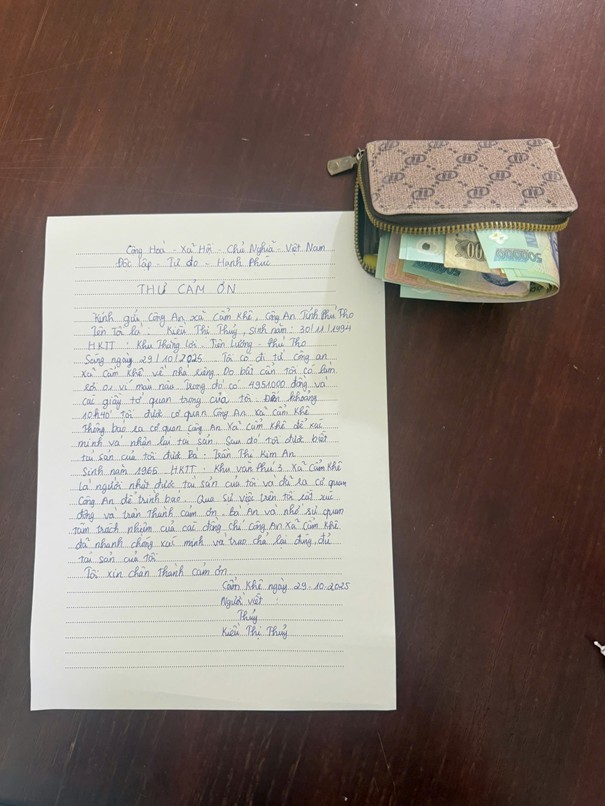 Cộng Hoà - Xã Hội - Chủ Nghĩa - Việt Nam
Độc Lập - Tự do - Hạnh Phúc
THƯ CẢM ƠN
Kính gửi Công An xã Cẩm Khê, Công An Tỉnh Phú Thọ
Tên Tôi là: Kiều Thị Thuý, sinh năm: 30/11/1994
HKTT: Khu Thắng Lợi - Tiên Lương - Phú Thọ
Sáng ngày 29/10/2025. Tôi có đi từ công an
xã Cẩm Khê về nhà riêng. Do bất cẩn tôi có làm
rơi 01 ví màu nâu trong đó có 4951000 đồng và
các giấy tờ quan trọng của tôi. Đến khoảng
10h40' Tôi được cơ quan Công An Xã Cẩm Khê
Thông báo ra cơ quan Công An Xã Cẩm Khê để xác
minh và nhận lại tài sản. Sau đó tôi được biết
tài sản của tôi được Bà: Trần Thị Kim An
Sinh năm 1965. HKTT: Khu văn Phú 3. Xã Cẩm Khê
là người nhặt được tài sản của tôi và đã ra cơ quan
Công An để trình báo. Qua sự việc trên tôi rất xúc
động và trân thành cảm ơn. Bà An và nhờ sự quan
tâm trách nhiệm của các đồng chí Công An Xã Cẩm Khê
đã nhanh chóng xác minh và trao chả lại đúng, đủ
tài sản của tôi
Tôi xin chân thành cảm ơn
Cẩm Khê ngày 29.10.2025
Người viết
Thúy
Kiều Thị Thúy